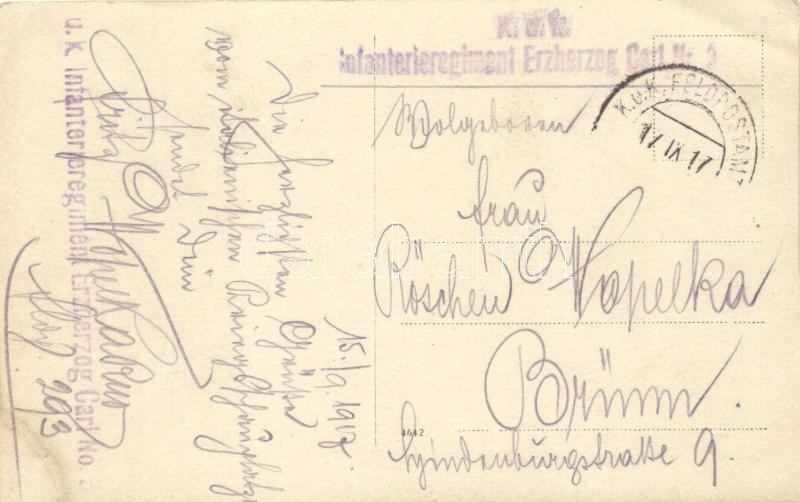 K. u. K.
Infanterieregiment Erzherzog Carl Nr. 3
K.u.K. FELDPOSTAMT
17 IX 17
Wolgeboren
Frau
Röschen Kopelka
Brünn.
Hindenburgstraße 9.
4642
15./9. 1917
Die herzlichsten Grüße
vom italienischen Kriegsschauplatz
sendet Dein
u. K. Infanterieregiment Erzherzog Carl No. 3